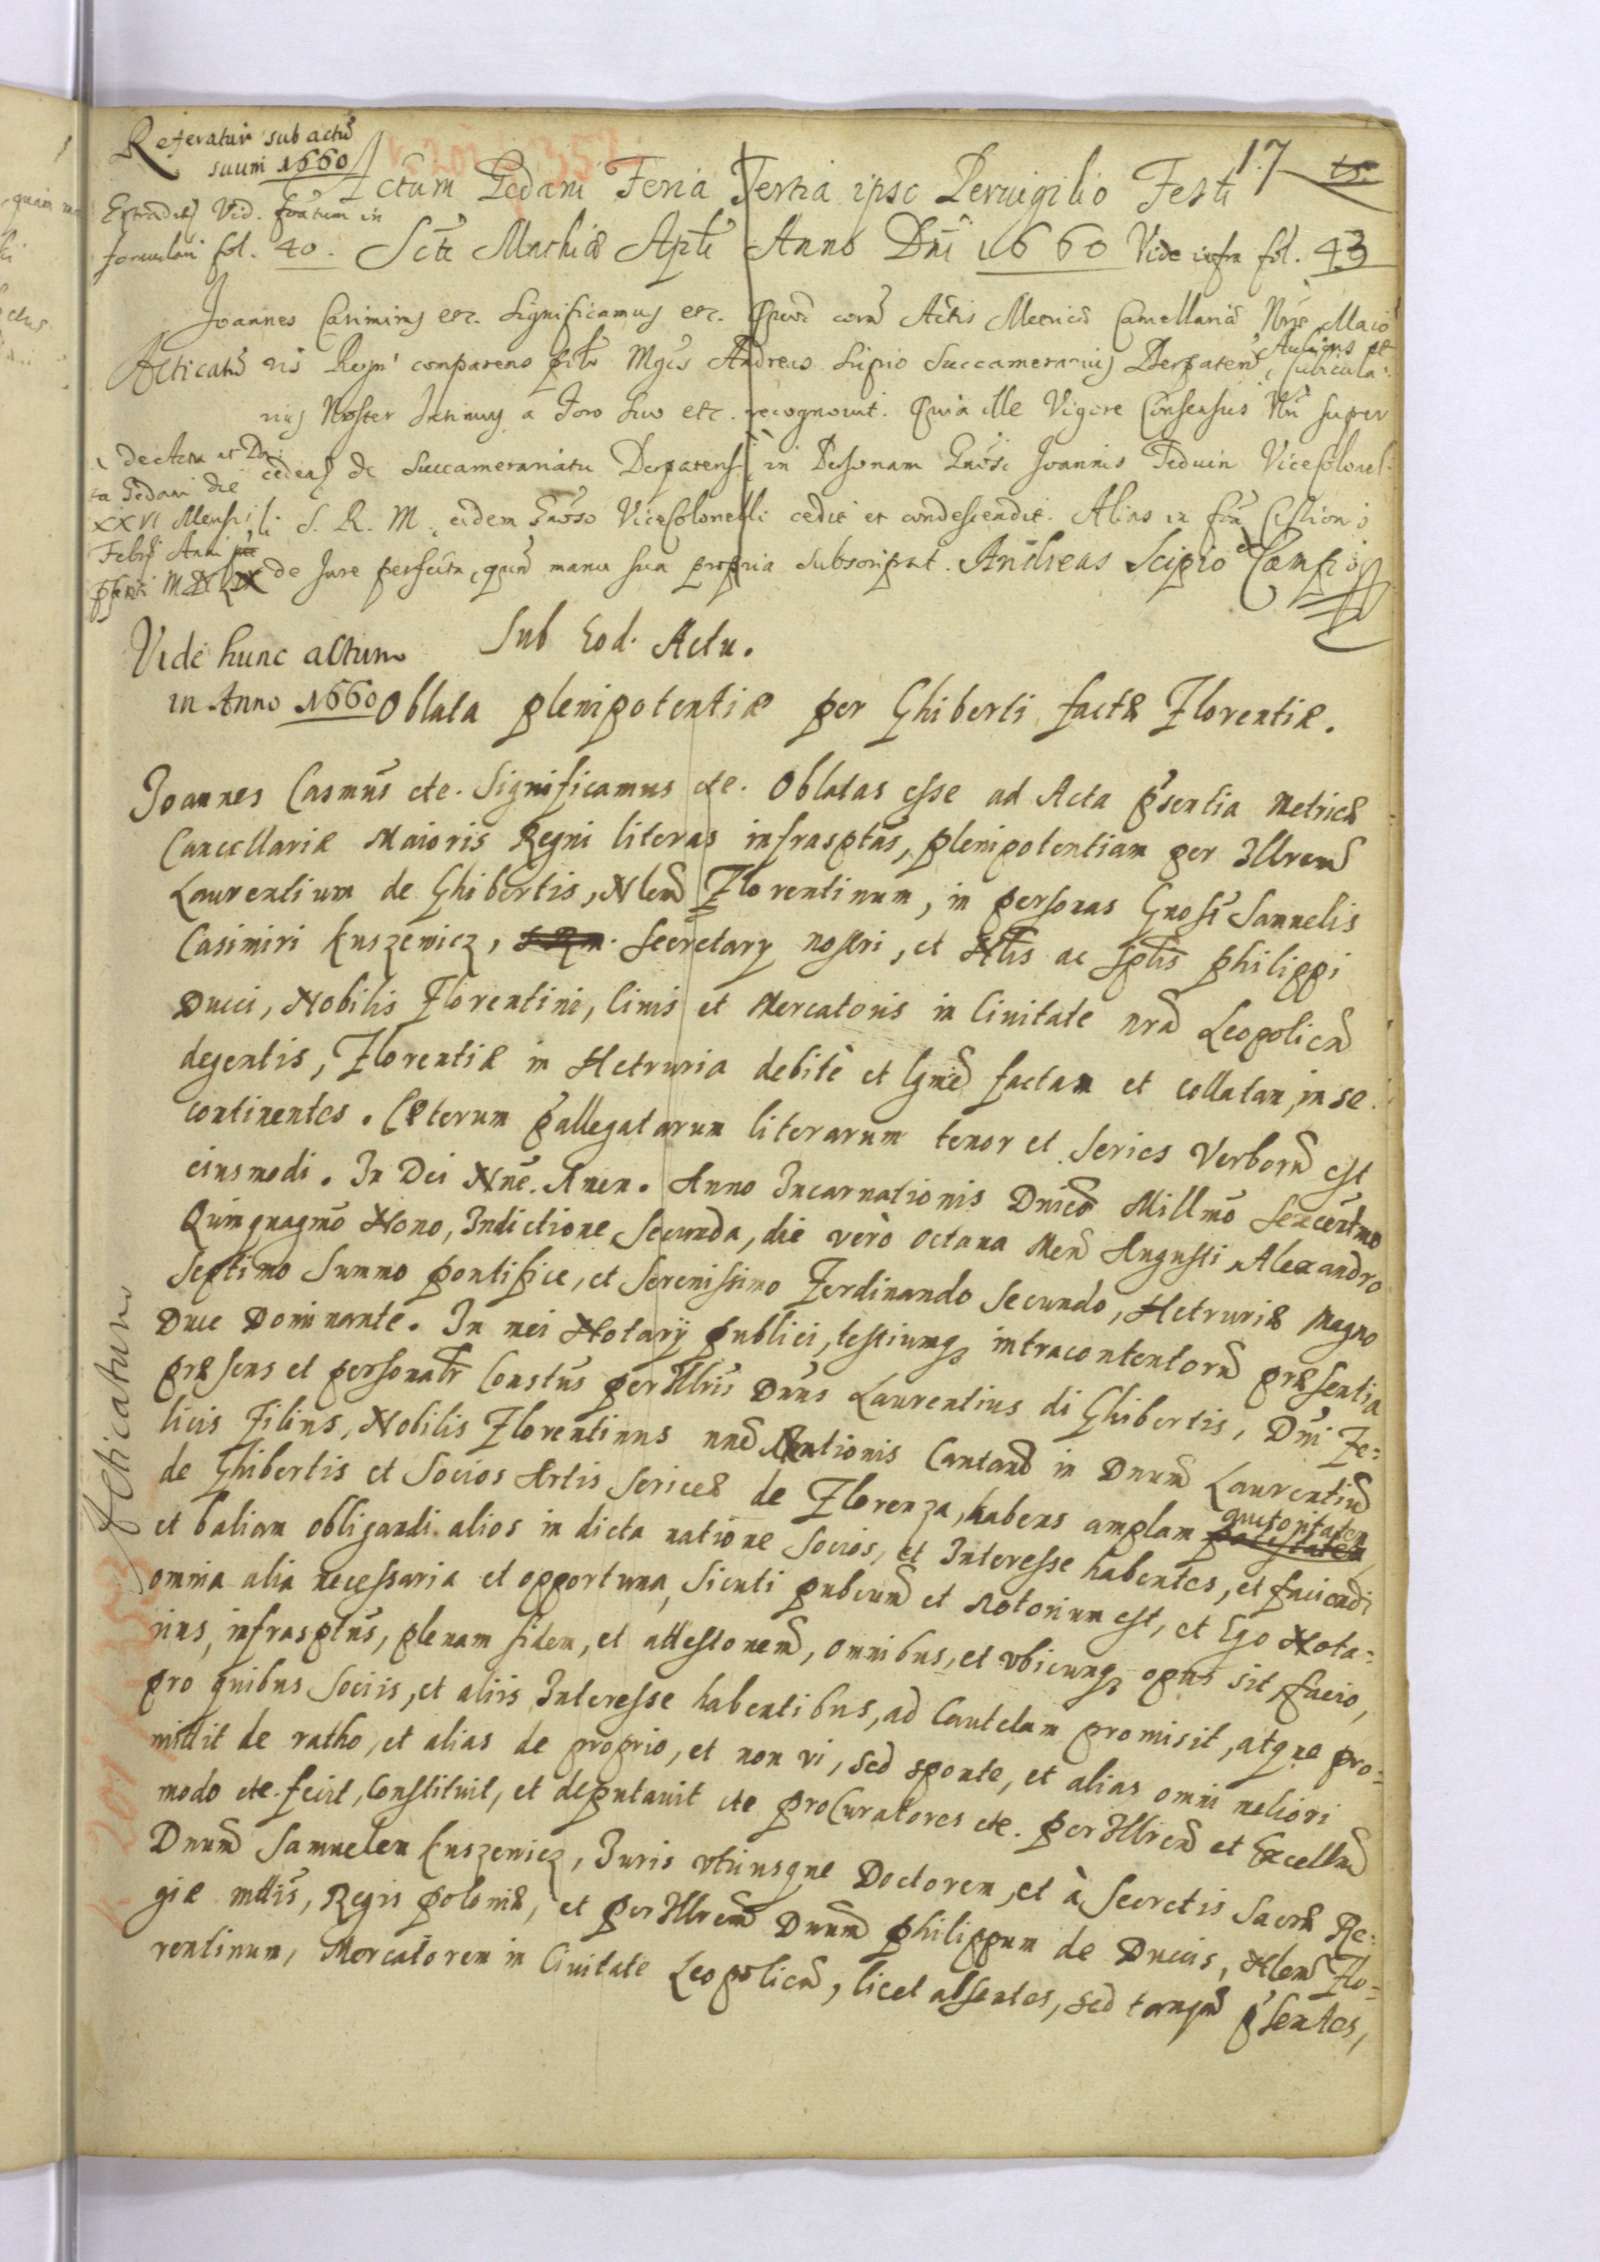 Referatur sub actū
suum 1660
17
Extradit₉ Vid. foatum in
formulari fol. 40.
Actum Gedani Feria Tertia ipso Pervigilio Festi
Scti Mathiæ Apli Anno Dni 1660 Vide infra fol. 43
Joannes Casimirus etc. Significamus etc. Quod coram Actis Metrices Cancellariæ Nrae Maio
Acticatū ris Regni comparens Mgcs Andreas Scipio Succamerarius Derpaten, Aulicus et Cubicula-
rius Noster Intimus a Foro suo etc. recognovit. Quia ille Vigore Consensus Nri super
de Acta et Da-
ta Gedani die
XXVI Mensis
Febrij Anni
cedens de Succamerariatu Derpatensi in Personam Gnosi Joannis Feduin ViceColonel-
li S. R. M. eidem Gnoso ViceColonelli cedit et condescendit. Alias in foa Cessionis
de Jure perfecta, quam manu sua propria subscripsit. Andreas Scipio de Campo
Vide hunc actum
in Anno 1660
Sub Eod. Actu.
Oblata plenipotentiæ per Ghiberti factæ Florentiæ.
Joannes Casmus etc. Significamus etc. Oblatas esse ad Acta psentia Metricæ
Cancellariæ Maioris Regni literas infrasptas, plenipotentiam per Illrem
Laurentium de Ghibertis, Nlem Florentinum, in personas Gnosi Samuelis
Casimiri Kuszewicz, Secretarij nostri, et Nlis ac Splis Philippi
Ducci, Nobilis Florentini, Civis et Mercatoris in Civitate nra Leopolien
degentis, Florentiæ in Hetruria debitè et lgme factam et collatam, in se
continentes. Cæterum pallegatarum literarum tenor et series Verborū est
eiusmodi. In Dei Nne. Amen. Anno Incarnationis Dnicæ Millmo Sexcentmo
Quinquagmo Nono, Indictione Secunda, die verò octava Men Augusti, Alexandro
Septimo Summo Pontifice, et Serenissimo Ferdinando Secundo, Hetruriæ Magno
Duce Dominante. In mei Notarij publici, testiumq₃ intracontentorū præsentia
præsens et personalr Constus perIllris Dnus Laurentius di Ghibertis, Dni Fe=
licis Filius, Nobilis Florentinus une Rationis Cantan in Dnum Laurentiū
de Ghibertis et Socios Artis Sericeæ de Florenza, habens amplam potestatem auctoritatem
et baliam obligandi alios in dicta ratione Socios, et Interesse habentes, et faciendi
omnia alia necessaria et opportuna, sicuti pubcum et Notorium est, et Ego Nota=
rius, infrasptus, plenam fidem, et attestonem, omnibus, et ubicunq₃ opus sit, facio,
pro quibus Sociis, et aliis Interesse habentibus, ad Cautelam promisit, atque pro=
mittit de ratho, et alias de proprio, et non vi, sed sponte, et alias omni meliori
modo etc. fecit, Constituit, et deputavit etc proCuratores etc. perIllrem et Excellm
Dnum Samuelem Kuszewicz, Juris vtriusque Doctorem, et à Secretis Sacræ Re=
giæ Mttis, Regis Poloniæ, et perIllrem Dnum Philippum de Ducis, Nlem Flo=
rentinum, Mercatorem in Civitate Leopolien, licet absentes, sed tanqm psentes,
Acticatum